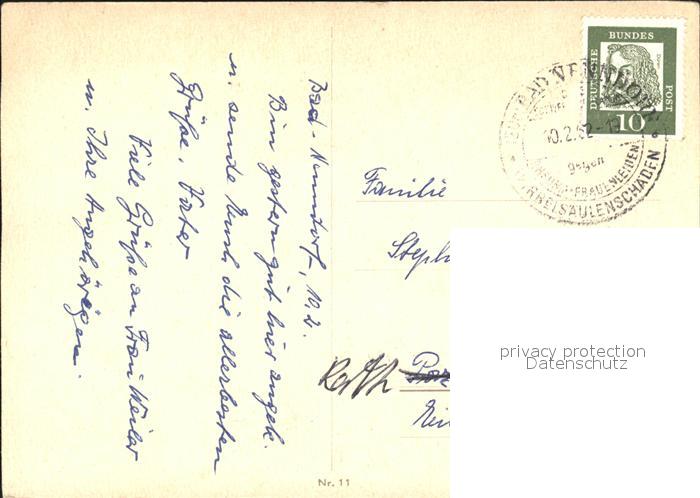 Bad-Nenndorf, 10.2.
Bin gestern gut hier angek.
u. sende Euch die allerbesten
Grüße, Vater
Viele Grüße an Frau Weiler
u. Ihre Angehörigen.
Familie
Steph
Nr. 11
DEUTSCHE
BUNDES
POST
10
BAD NENNDORF
10.2.62-1
gegen
FRAUENLEIDEN
WIRBELSÄULENSCHÄDEN
privacy protection
Datenschutz